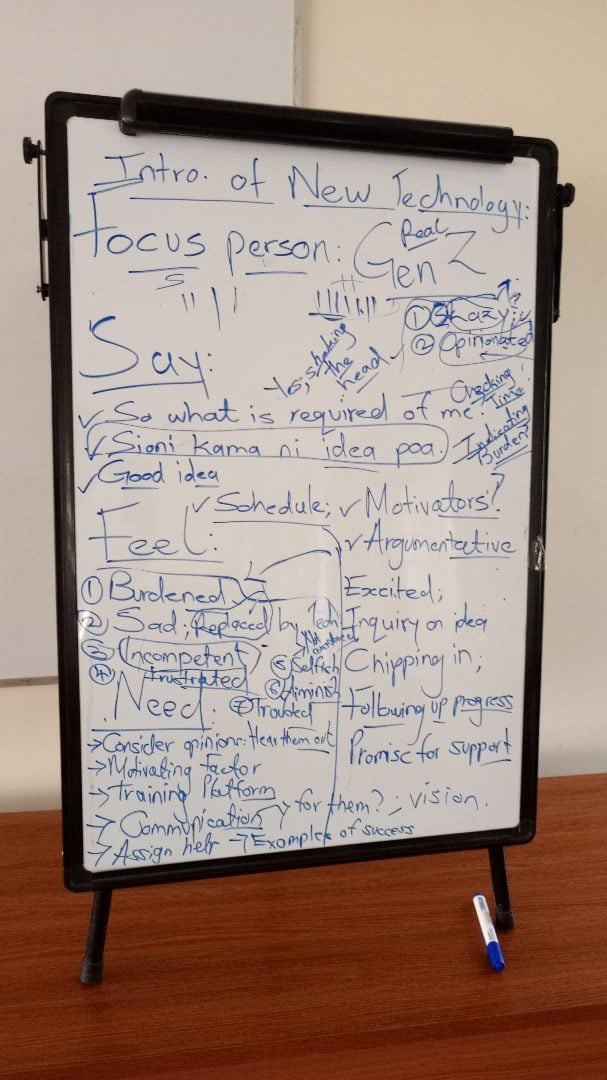 Intro. of New Technology:
Focus person: Real Gen Z
S
① Lazy;
② Opinionated
Say:
Yes; shaking the head
✓ So what is required of me.
Checking Time
✓ Sioni kama ni idea poa.
Indicating Burden?
✓ Good idea
✓ Schedule; ✓ Motivators?
Feel:
✓ Argumentative
① Burdened
② Sad; Replaced by Tech
③ Incompetent
④ frustrated
⑤ Selfish
⑥ Diminish
⑦ Troubled
Excited;
Inquiry on idea
Chipping in;
Following up progress
Promise for support
Need:
→ Consider opinions: Hear them out
→ Motivating factor
→ Training Platform
→ Communication for them?; vision.
→ Assign help → Examples of success